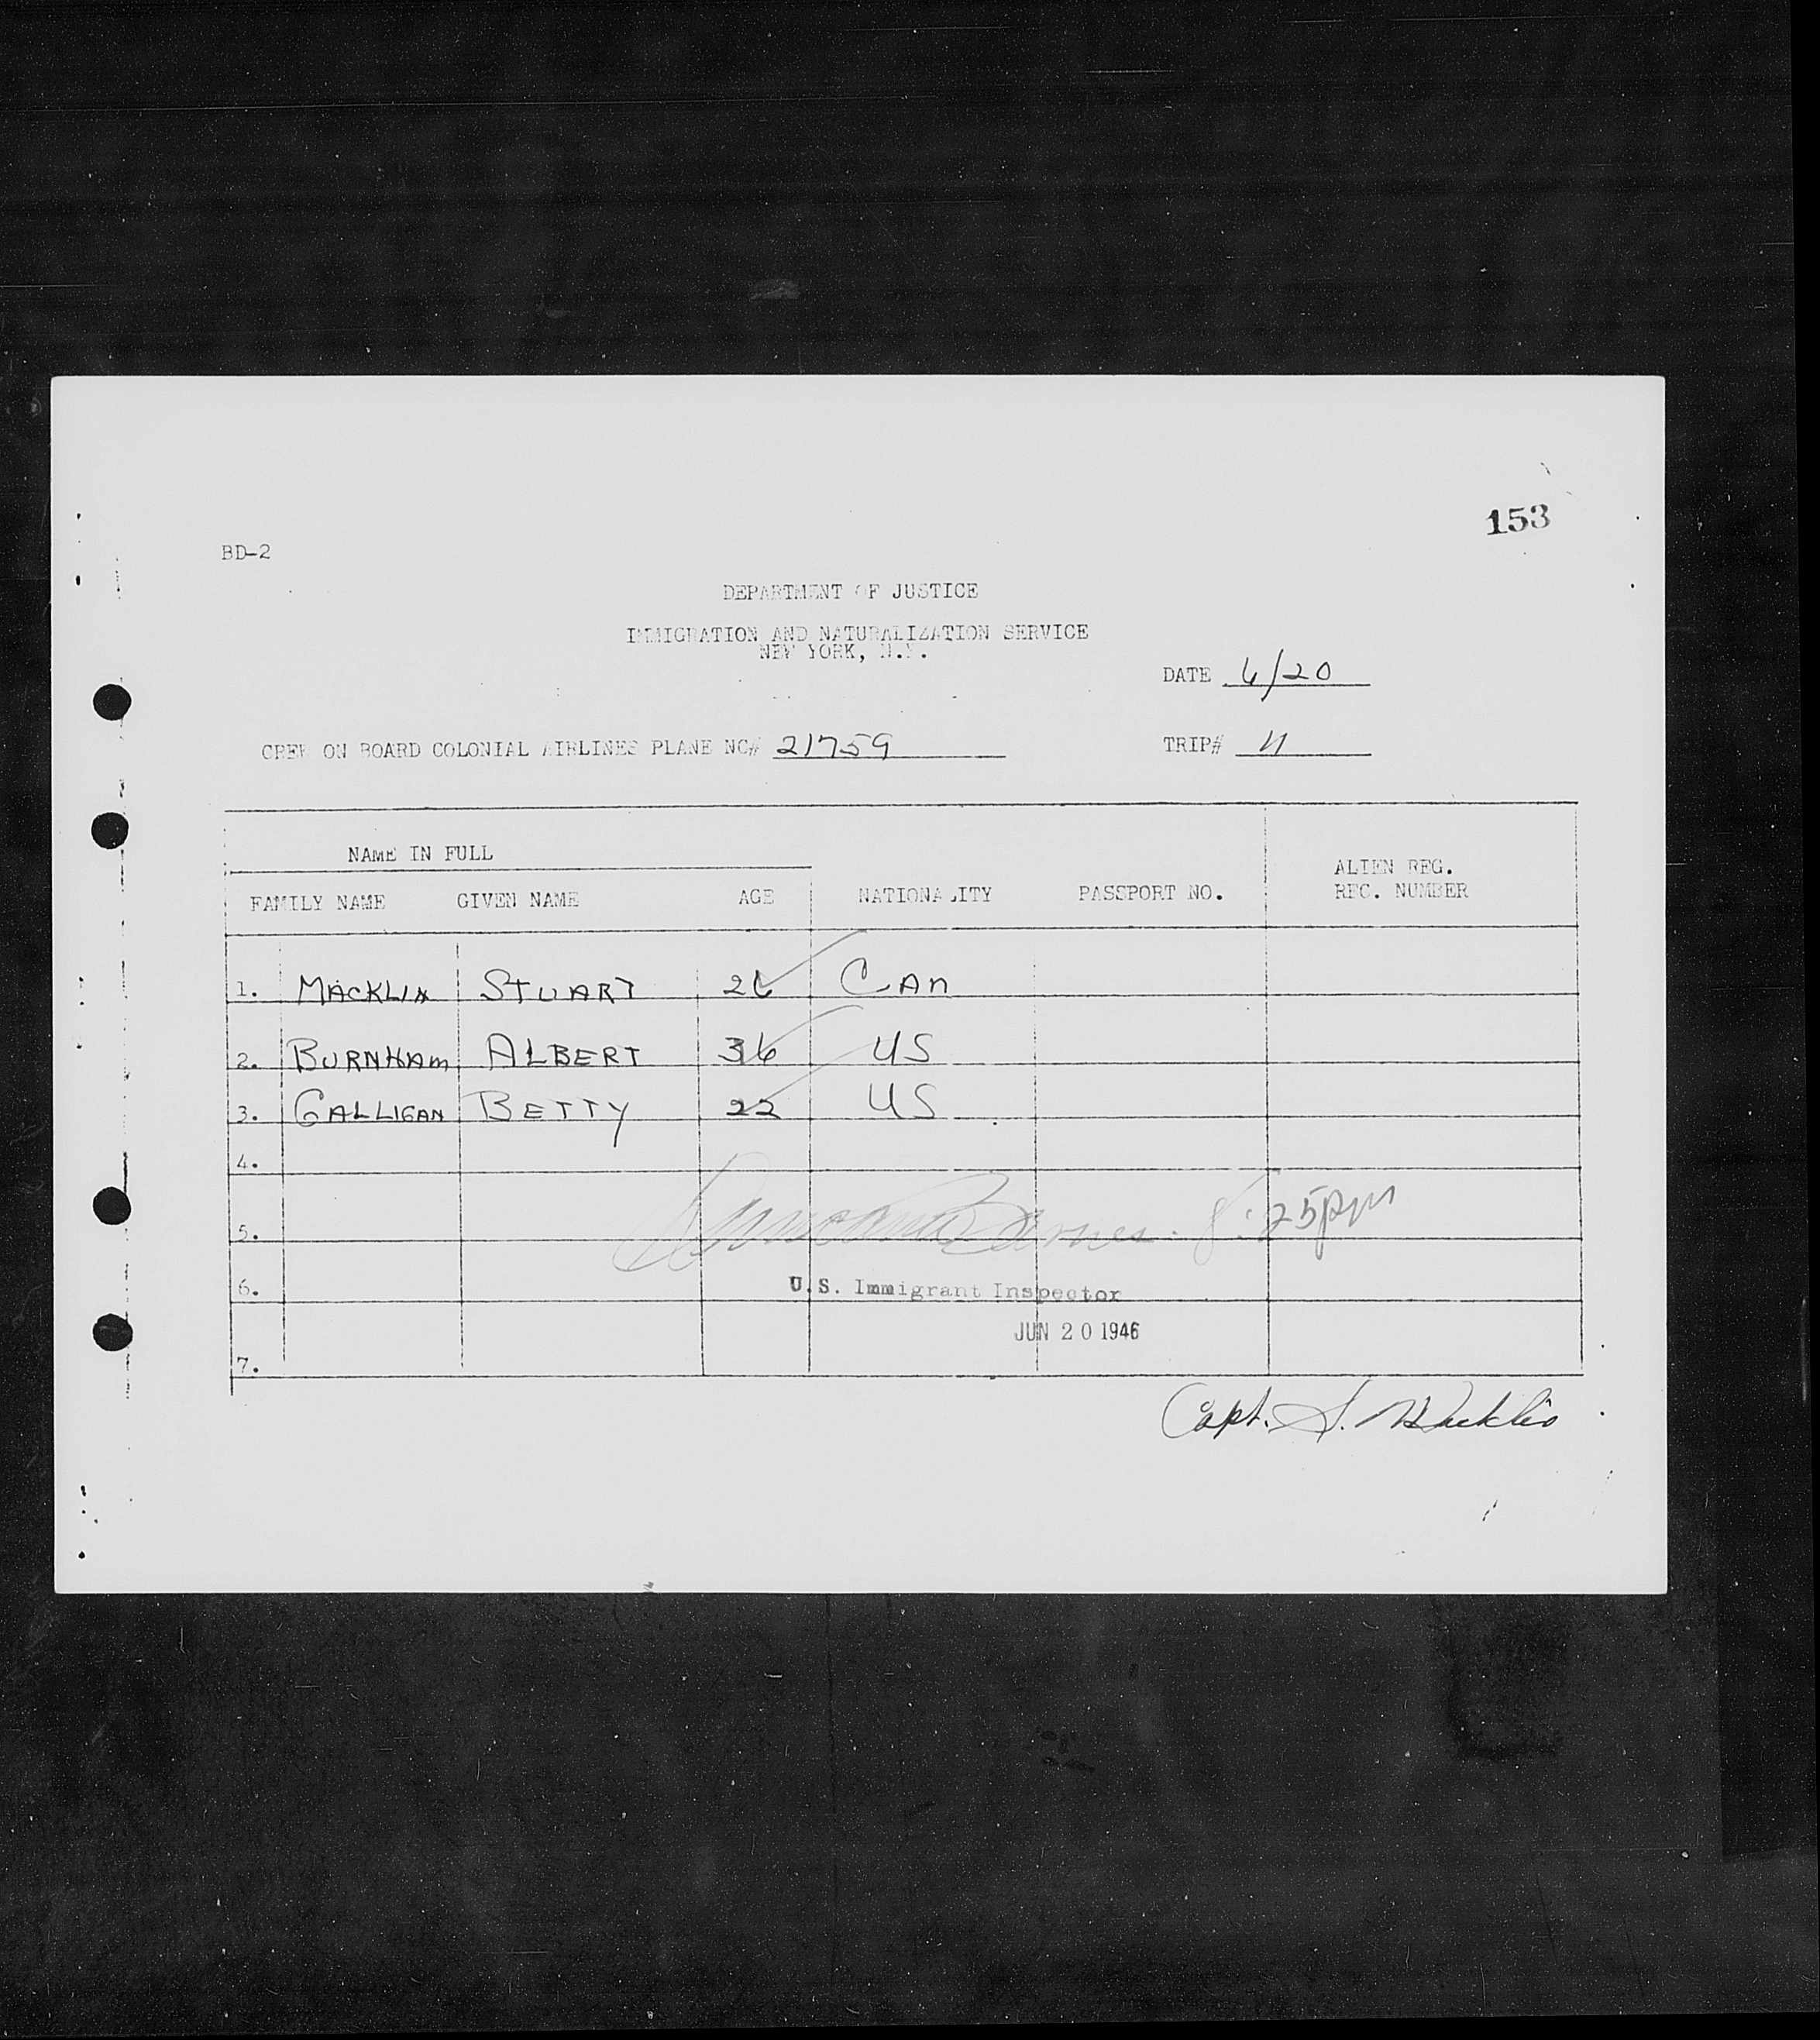 153
BD-2
DEPARTMENT OF JUSTICE
IMMIGRATION AND NATURALIZATION SERVICE
NEW YORK, N.Y.
DATE 6/20
CREW ON BOARD COLONIAL AIRLINES PLANE NC# 21759 TRIP# 11
NAME IN FULL
FAMILY NAME GIVEN NAME AGE NATIONALITY PASSPORT NO. ALIEN REG. REC. NUMBER
1. MACKLIN STUART 26 CAN
2. BURNHAM ALBERT 36 US
3. GALLIGAN BETTY 22 US
4.
5. Barnes. 8:25pm
6. U.S. Immigrant Inspector
JUN 20 1946
7.
Capt. S. Macklin